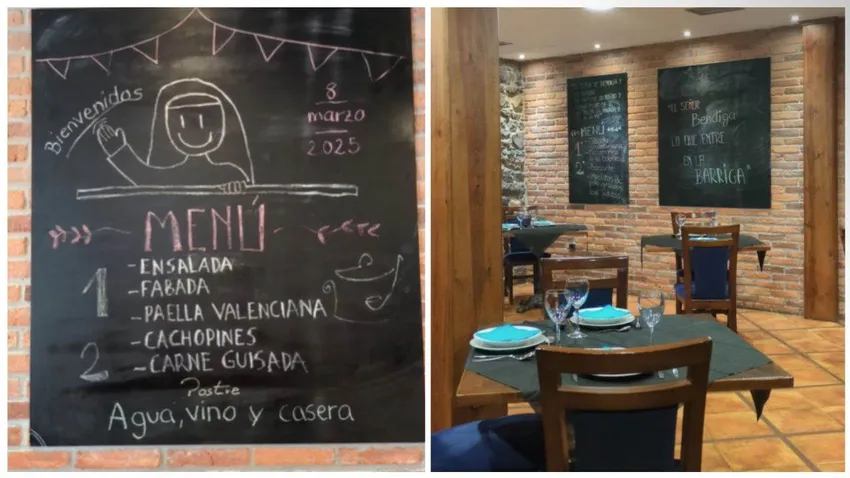 Bienvenidos
8
marzo
2025
MENÚ
1 -ENSALADA
-FABADA
-PAELLA VALENCIANA
2 -CACHOPINES
-CARNE GUISADA
Postre
Agua, vino y casera
MENÚ
1
2
"EL SEÑOR
Bendiga
LO QUE ENTRE
EN LA
BARRIGA"